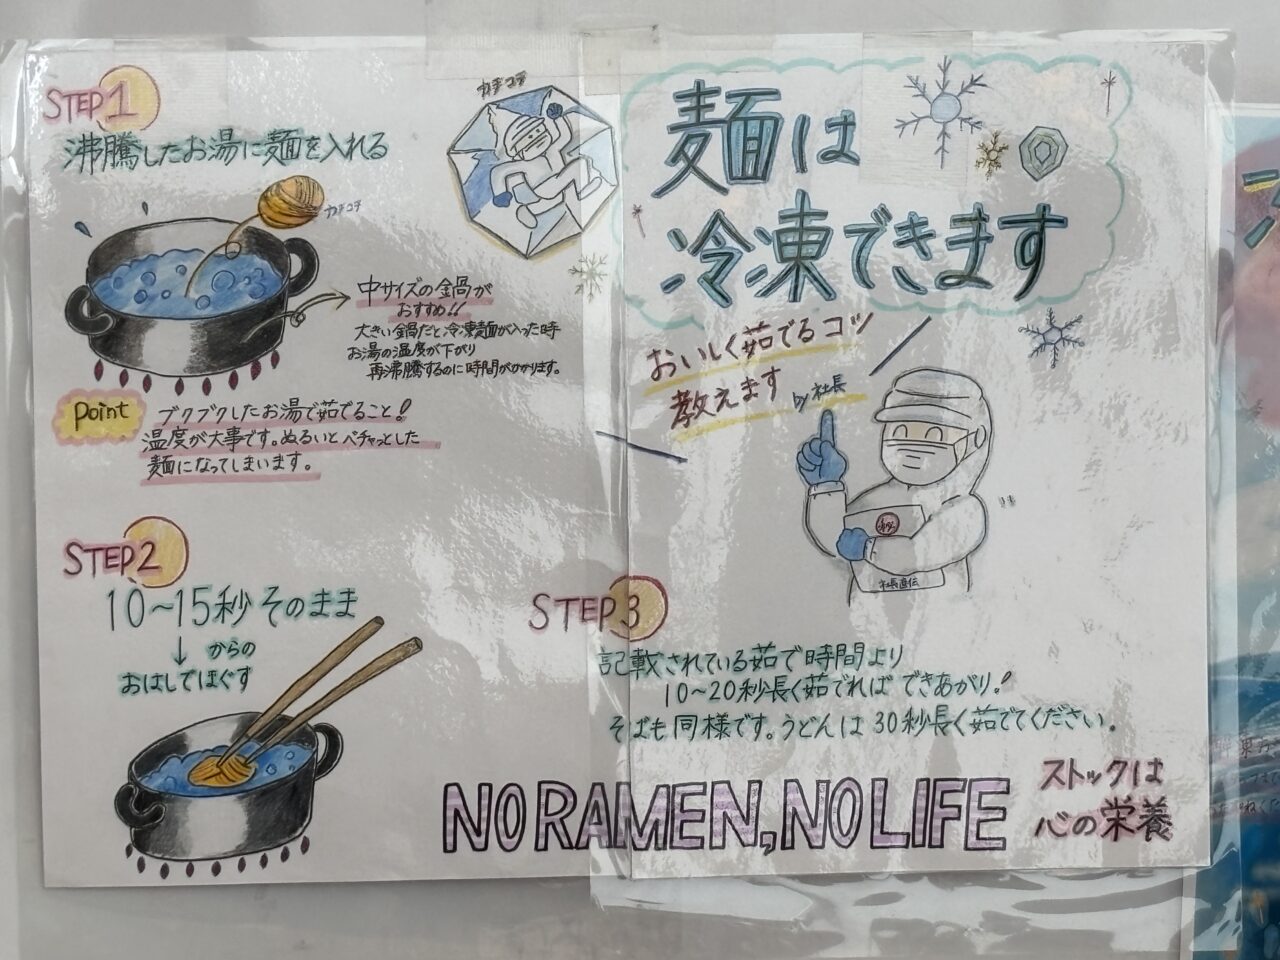 STEP1
沸騰したお湯に麺を入れる
カチコチ
カチコチ
中サイズの鍋が
おすすめ!!
大きい鍋だと冷凍麺が入った時
お湯の温度が下がり
再沸騰するのに時間がかかります。
Point
ブクブクしたお湯で茹でること!
温度が大事です。ぬるいとベチャっとした
麺になってしまいます。
STEP2
10〜15秒そのまま
↓からの
おはしでほぐす
麺は
冷凍できます
おいしく茹でるコツ
教えます by 社長
社長直伝
STEP3
記載されている茹で時間より
10〜20秒長く茹でれば できあがり!
そばも同様です。うどんは30秒長く茹でてください。
NO RAMEN, NO LIFE
ストックは
心の栄養